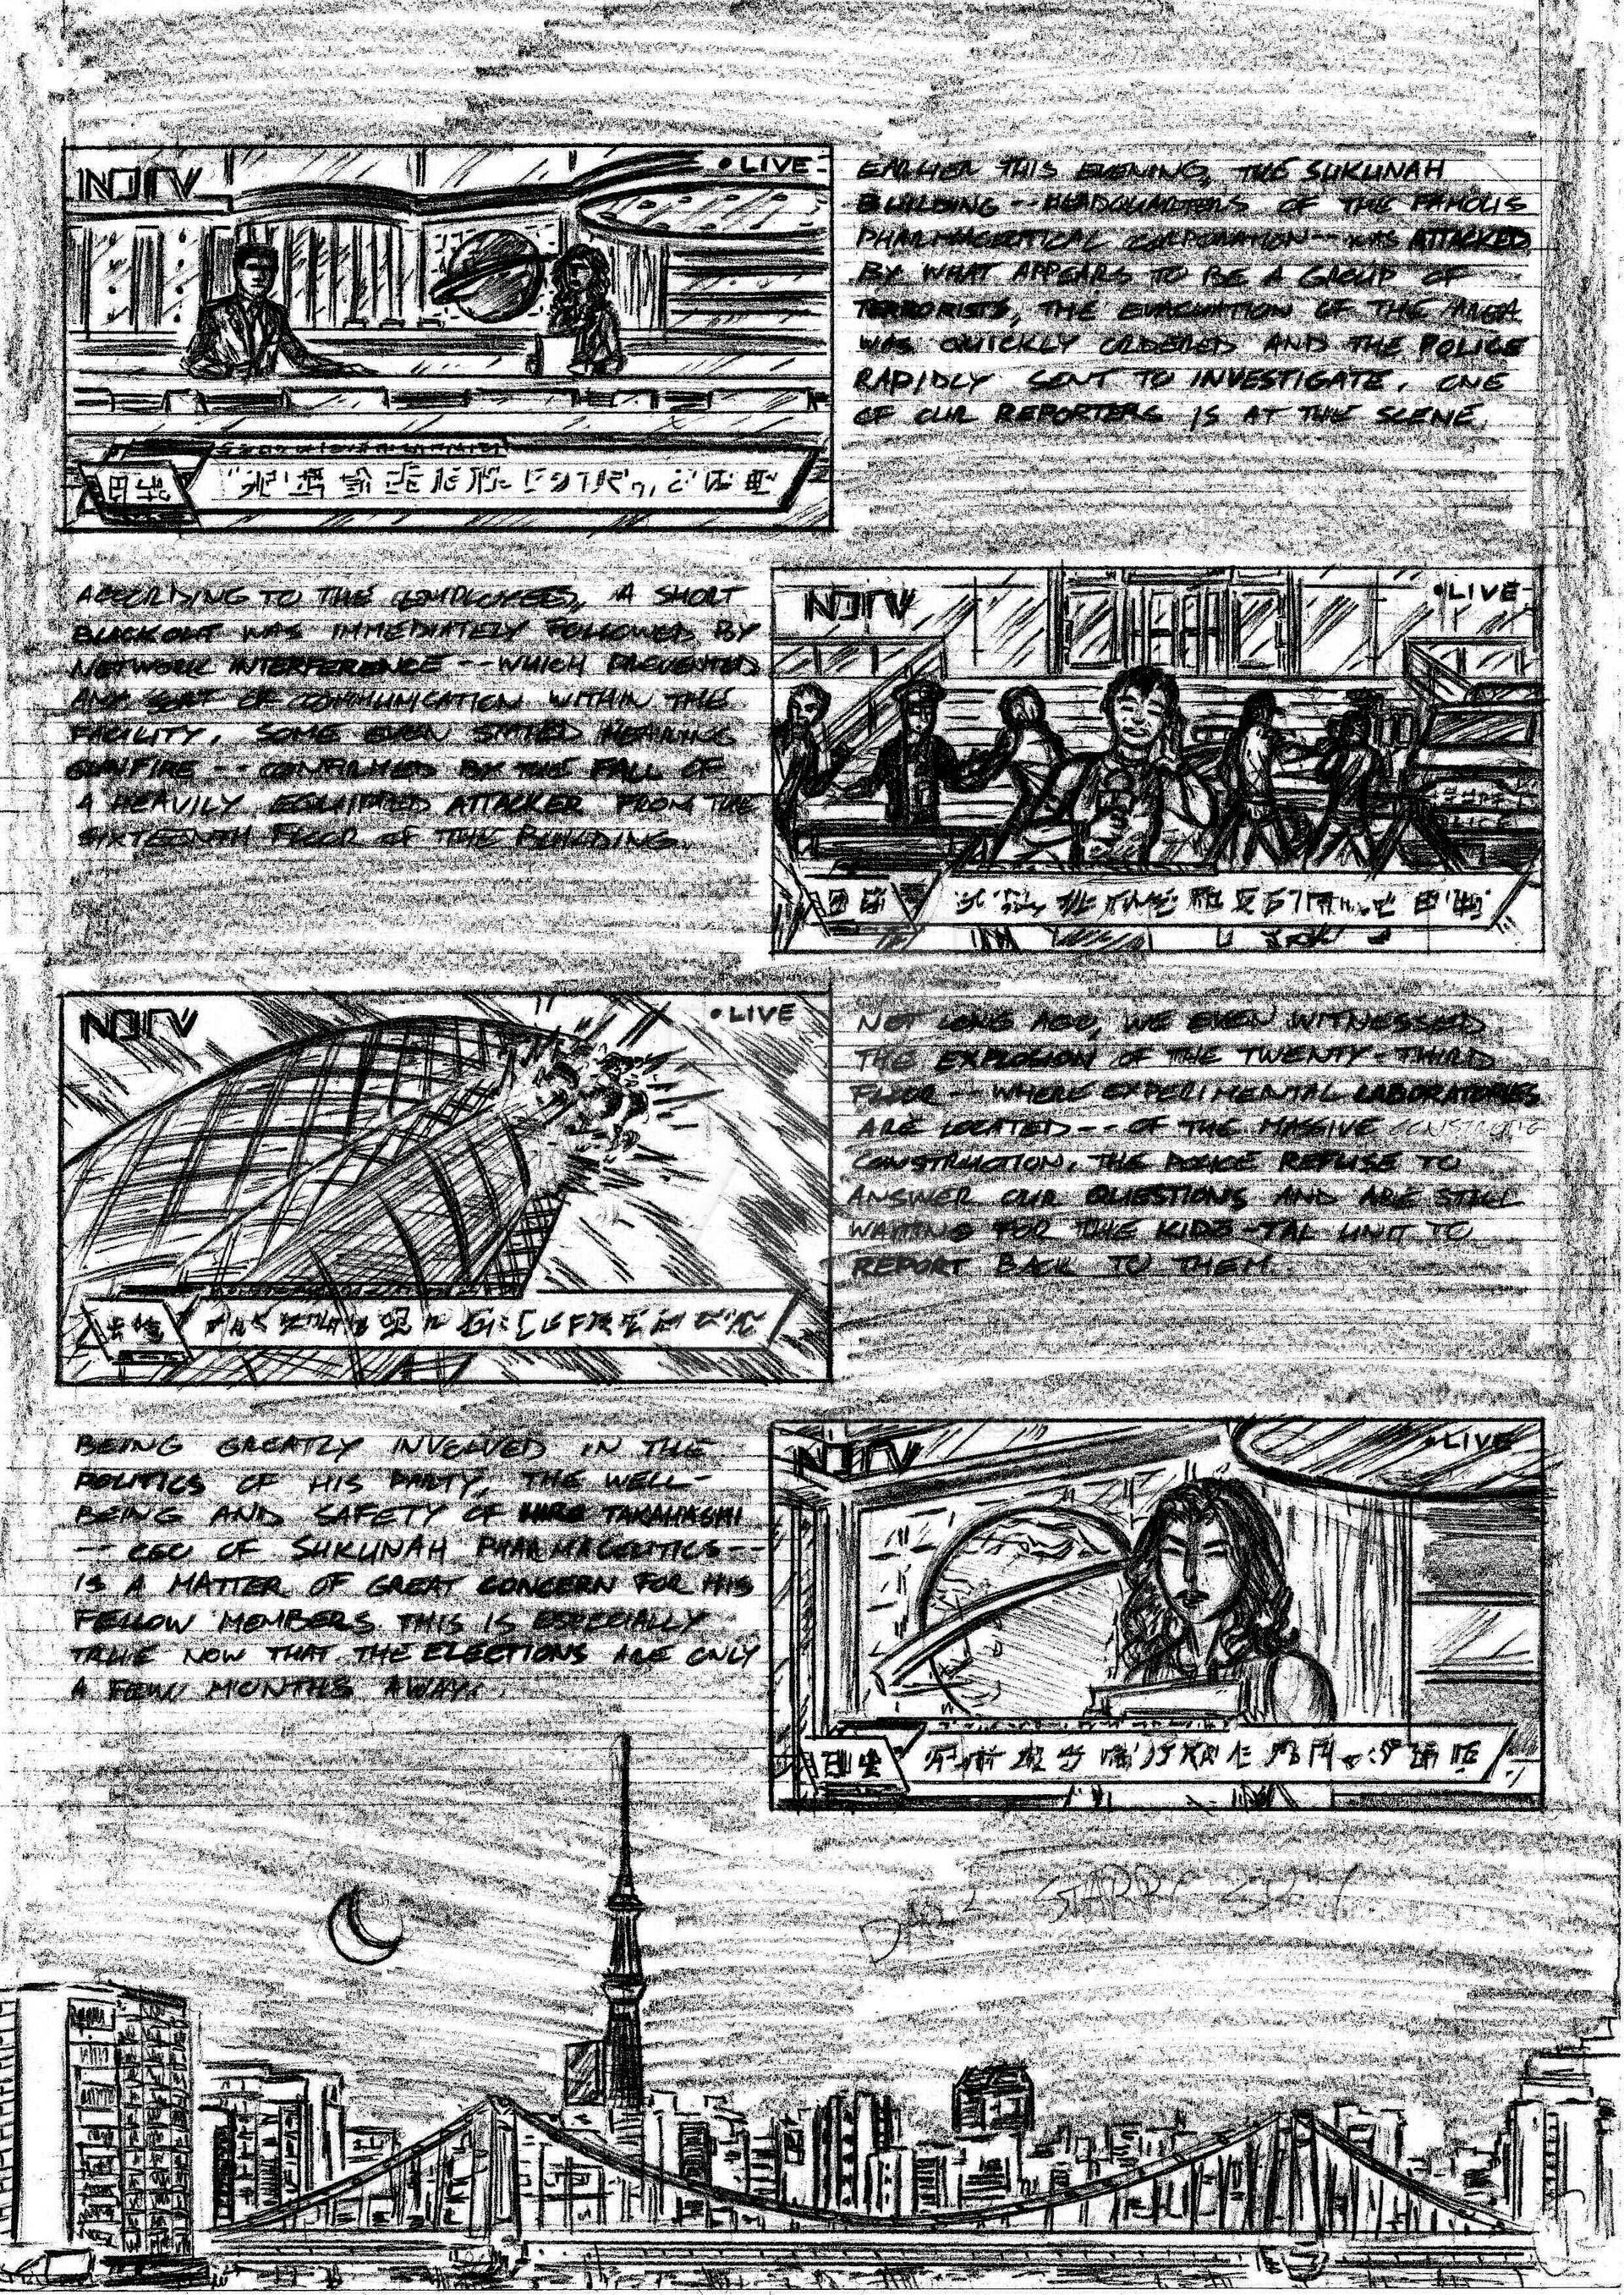 NJTV
• LIVE
EARLIER THIS EVENING, THE SUKUNAH
BUILDING -- HEADQUARTERS OF THE FAMOUS
PHARMACEUTICAL CORPORATION -- WAS ATTACKED
BY WHAT APPEARS TO BE A GROUP OF
TERRORISTS, THE EVACUATION OF THE AREA
WAS QUICKLY ORDERED AND THE POLICE
RAPIDLY SENT TO INVESTIGATE. ONE
OF OUR REPORTERS IS AT THE SCENE.
ACCORDING TO THE EMPLOYEES, A SHORT
BLACKOUT WAS IMMEDIATELY FOLLOWED BY
NETWORK INTERFERENCE -- WHICH PREVENTED
ANY SORT OF COMMUNICATION WITHIN THE
FACILITY. SOME EVEN STATED HEARING
GUNFIRE -- CONFIRMED BY THE FALL OF
A HEAVILY EQUIPPED ATTACKER FROM THE
SIXTEENTH FLOOR OF THE BUILDING.
NJTV
• LIVE
NJTV
• LIVE
NOT LONG AGO, WE EVEN WITNESSED
THE EXPLOSION OF THE TWENTY-THIRD
FLOOR -- WHERE EXPERIMENTAL LABORATORIES
ARE LOCATED -- OF THE MASSIVE
CONSTRUCTION. THE POLICE REFUSE TO
ANSWER OUR QUESTIONS AND ARE STILL
WAITING FOR THE KIDO-TAI UNIT TO
REPORT BACK TO THEM.
BEING GREATLY INVOLVED IN THE
POLITICS OF HIS PARTY, THE WELL-
BEING AND SAFETY OF HIRO TAKAHASHI
-- CEO OF SUKUNAH PHARMACEUTICS --
IS A MATTER OF GREAT CONCERN FOR HIS
FELLOW MEMBERS. THIS IS ESPECIALLY
TRUE NOW THAT THE ELECTIONS ARE ONLY
A FEW MONTHS AWAY.
NJTV
• LIVE
STARRY SKY